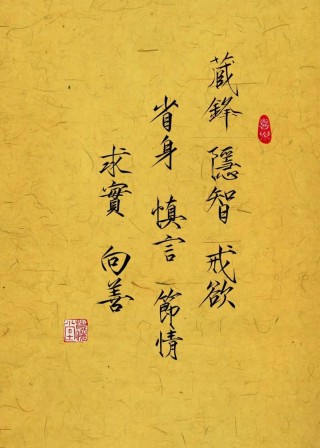 蔵鋒 隱智 戒欲
省身 慎言 節情
求實 向善